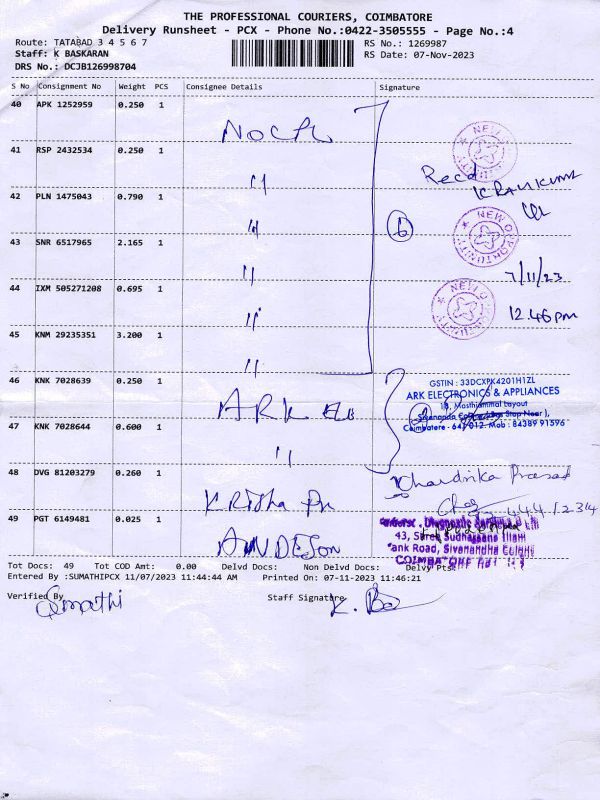 THE PROFESSIONAL COURIERS, COIMBATORE
Delivery Runsheet - PCX - Phone No.:0422-3505555 - Page No.:4
Route: TATABAD 3 4 5 6 7
RS No.: 1269987
Staff: K BASKARAN
RS Date: 07-Nov-2023
DRS No.: DCJB126998704
S No Consignment No Weight PCS Consignee Details Signature
40 APK 1252959 0.250 1
41 RSP 2432534 0.250 1 "
Recd
42 PLN 1475043 0.790 1 "
6
NEW OPPORTUNITY
43 SNR 6517965 2.165 1 "
7/11/23
44 IXM 505271208 0.695 1 "
12.46 pm
45 KNM 29235351 3.200 1 "
46 KNK 7028639 0.250 1 ARK
GSTIN : 33DCXPK4201H1ZL
ARK ELECTRONICS & APPLIANCES
Coimbatore - 641 012. Mob : 84389 91596
47 KNK 7028644 0.600 1 "
48 DVG 81203279 0.260 1
Chandrika Prasad
49 PGT 6149481 0.025 1
43,
COIMBATORE
Tot Docs: 49 Tot COD Amt: 0.00 Delvd Docs: Non Delvd Docs: Delvy Pts:
Entered By :SUMATHIPCX 11/07/2023 11:44:44 AM Printed On: 07-11-2023 11:46:21
Verified By
Staff Signature